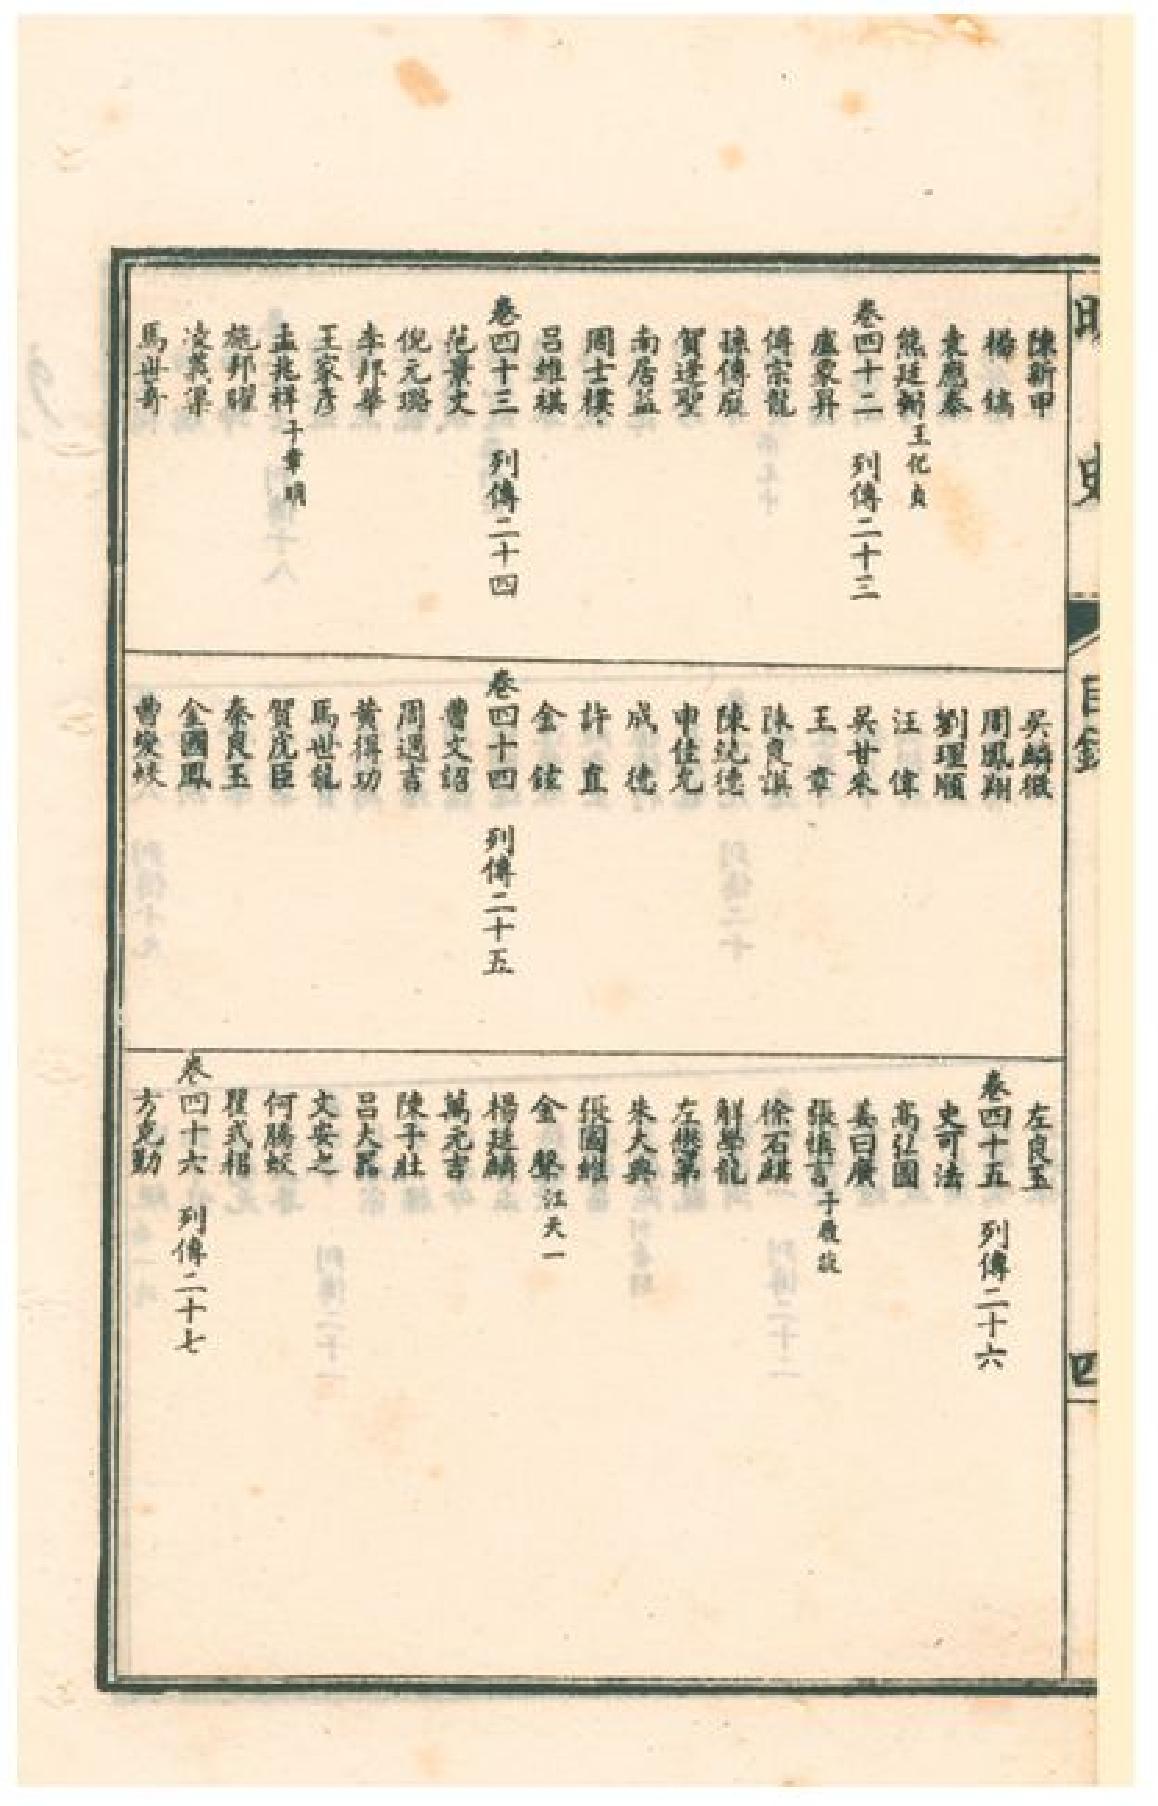 明史
目錄
四
陳新甲
楊鎬
袁應泰
熊廷弼 王化貞
卷四十二 列傳二十三
盧象昇
傅宗龍
孫傳庭
賀逢聖
南居益
周士樸
呂維祺
卷四十三 列傳二十四
范景文
倪元璐
李邦華
王家彥
孟兆祥 子章明
施邦曜
淩義渠
馬世奇
吳麟徵
周鳳翔
劉理順
汪偉
吳甘來
王章
陳良謨
陳純德
申佳允
成德
許直
金鉉
卷四十四 列傳二十五
曹文詔
周遇吉
黃得功
馬世龍
賀虎臣
秦良玉
金國鳳
曹變蛟
左良玉
卷四十五 列傳二十六
史可法
高弘圖
姜曰廣
張慎言 子履旋
徐石麒
解學龍
左懋第
朱大典
張國維
金聲 江天一
楊廷麟
萬元吉
陳子壯
呂大器
文安之
何騰蛟
瞿式耜
卷四十六 列傳二十七
方克勤